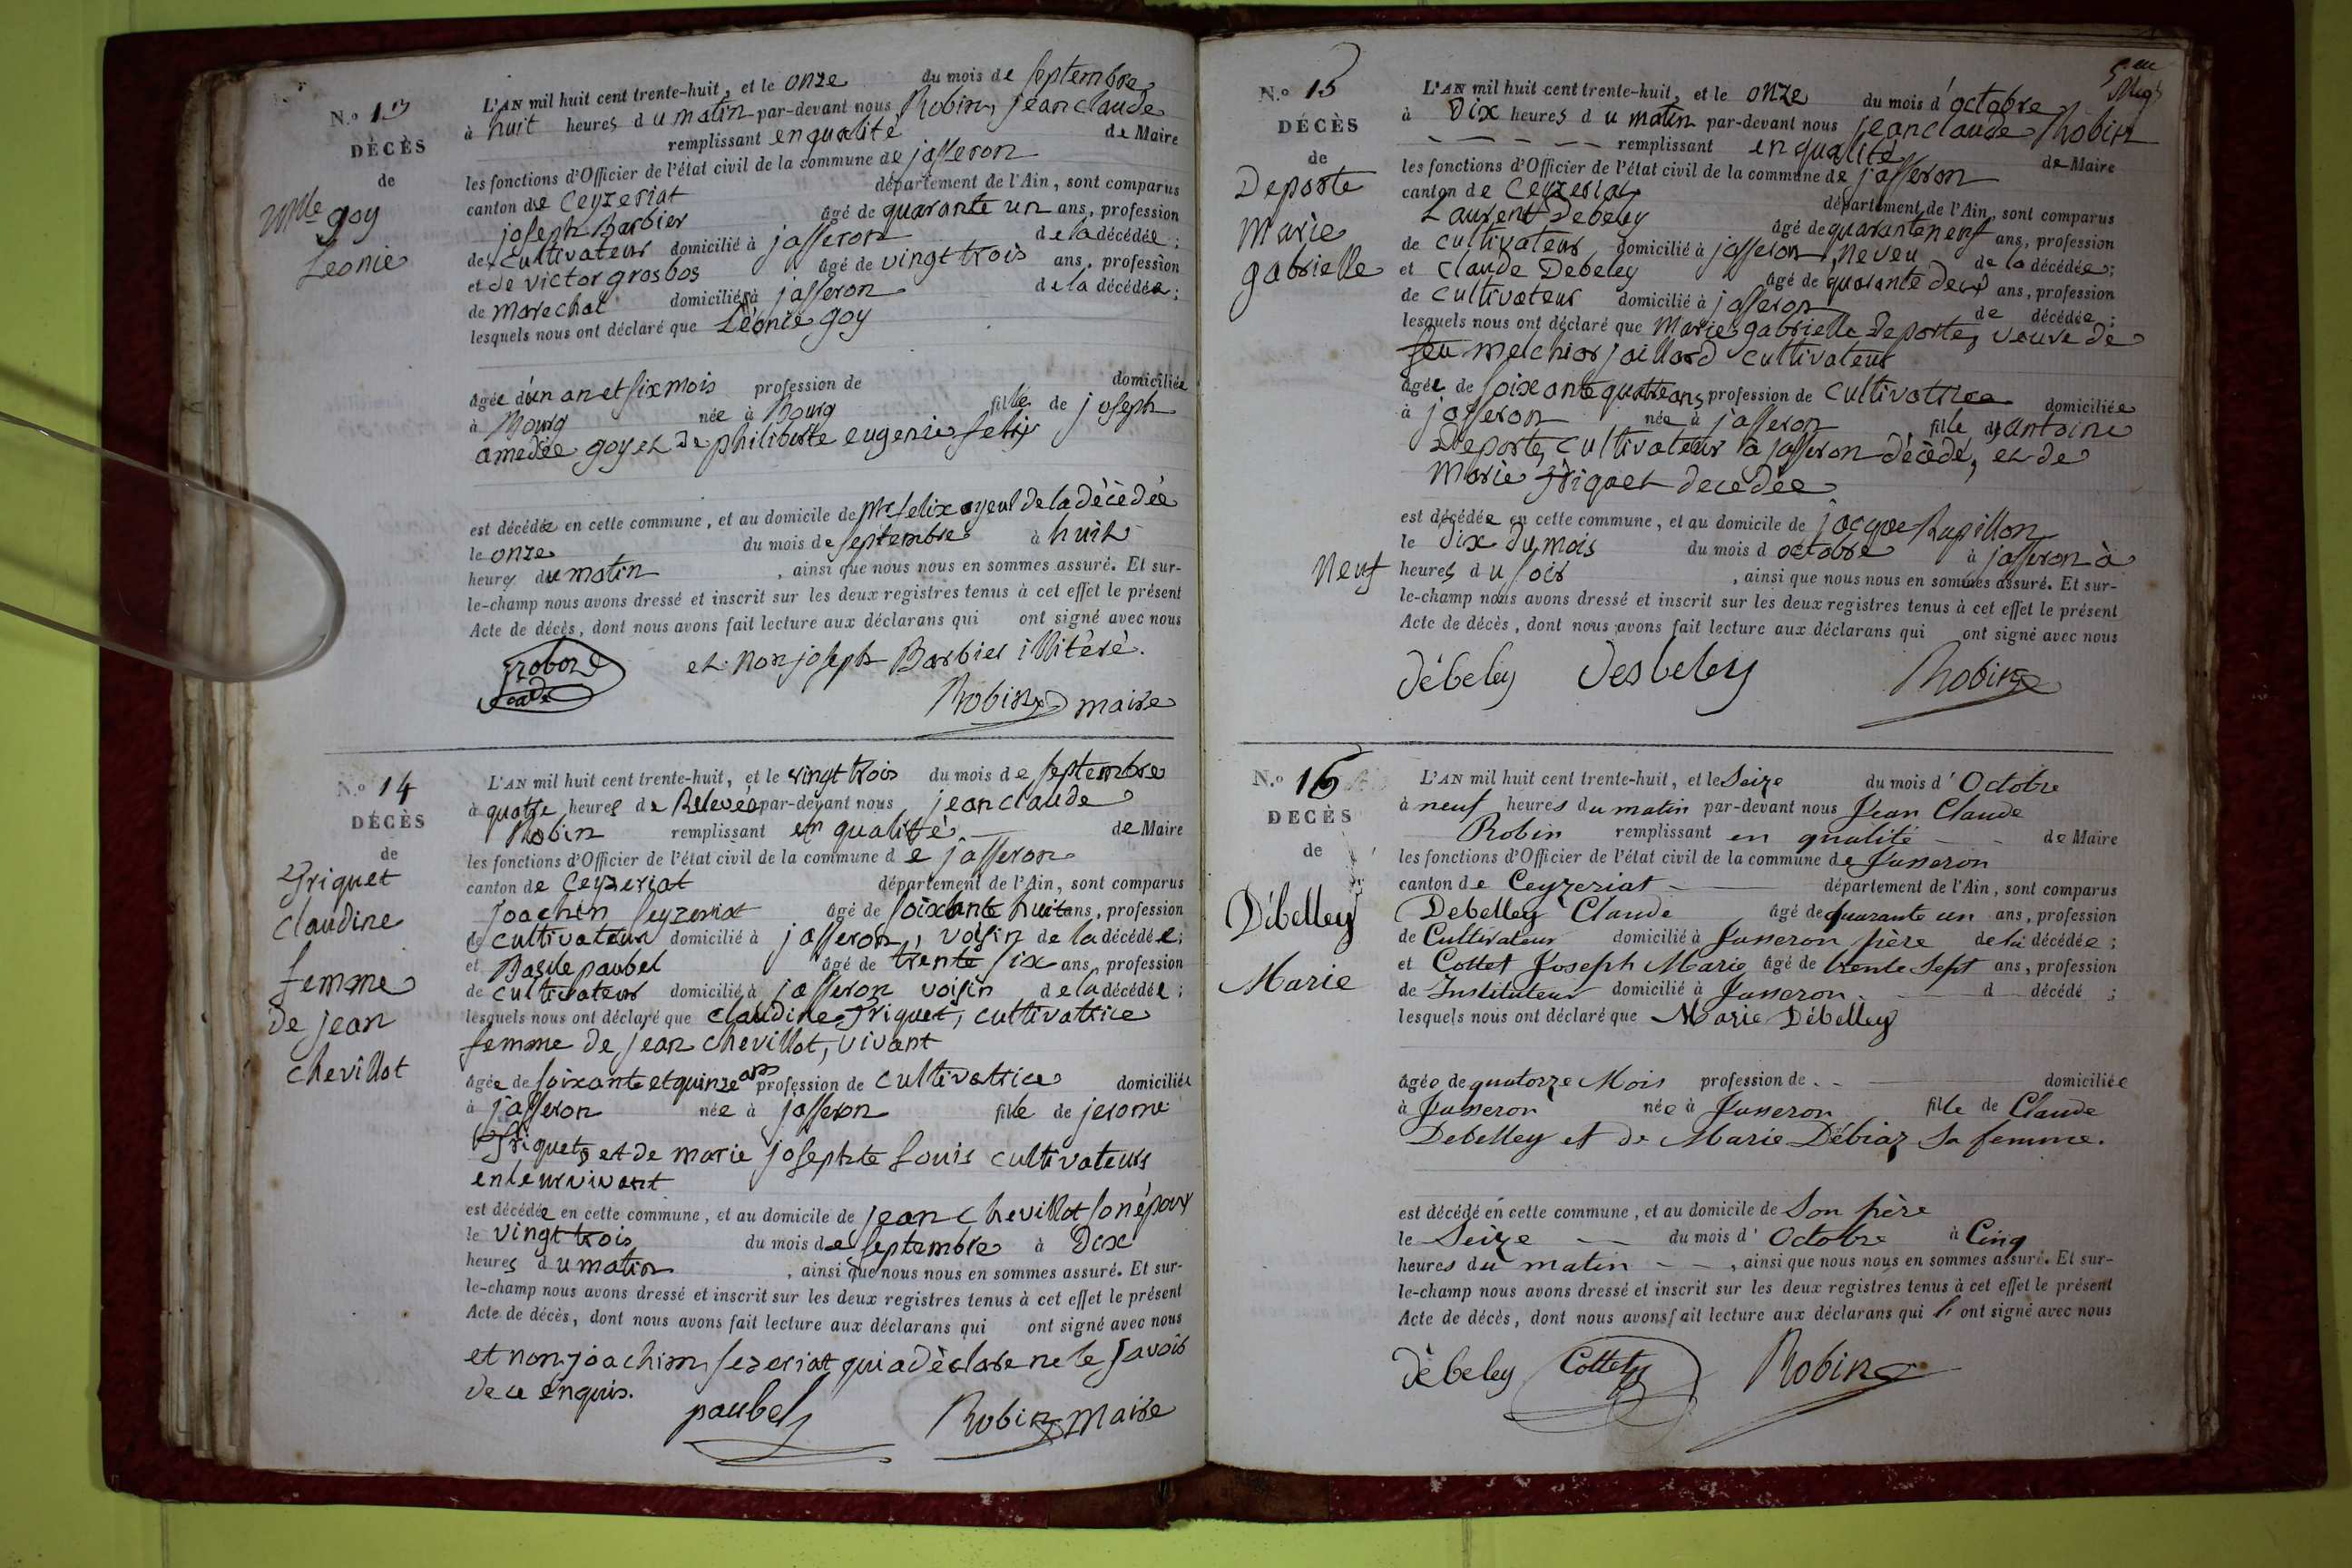 N.o 13
DÉCÈS
de
Mlle goy
Leonie
L'AN mil huit cent trente-huit, et le onze du mois de septembre
à huit heures du matin par-devant nous Robin, jean claude
remplissant en qualité de Maire
les fonctions d'Officier de l'état civil de la commune de jasseron
canton de Ceyzeriat département de l'Ain, sont comparus
joseph Barbier âgé de quarante un ans, profession
de cultivateur domicilié à jasseron de la décédée;
et de victor grosbos âgé de vingt trois ans, profession
de marechal domiciliés à jasseron de la décédée;
lesquels nous ont déclaré que Léonie goy
âgée d'un an et six mois profession de domiciliée
à Bourg née à Bourg fille de joseph
amedée goy et de philiberte eugenie felix
est décédée en cette commune, et au domicile de Mr felix ayeul de la décédée
le onze du mois de septembre à huit
heures du matin, ainsi que nous nous en sommes assuré. Et sur-
le-champ nous avons dressé et inscrit sur les deux registres tenus à cet effet le présent
Acte de décès, dont nous avons fait lecture aux déclarans qui ont signé avec nous
et non joseph Barbier illitéré.
Robin maire
N.o 14
DÉCÈS
de
friquet
claudine
femme
de jean
chevillot
L'AN mil huit cent trente-huit, et le vingt trois du mois de septembre
à quatre heures de Relevée par-devant nous jean claude
Robin remplissant en qualité de Maire
les fonctions d'Officier de l'état civil de la commune de jasseron
canton de Ceyzeriat département de l'Ain, sont comparus
joachin Seyzeriat âgé de soixante huit ans, profession
de cultivateur domicilié à jasseron, voisin de la décédée;
et Basile paubel âgé de trente six ans, profession
de cultivateur domicilié à jasseron voisin de la décédée;
lesquels nous ont déclaré que claudine friquet, cultivatrice
femme de jean chevillot, vivant
âgée de soixante et quinze ans profession de cultivatrice domiciliée
à jasseron née à jasseron fille de jerome
friquet, et de marie josephte Louis cultivateurs
en leur vivant
est décédée en cette commune, et au domicile de jean chevillot son époux
le vingt trois du mois de septembre à Dix
heures du matin, ainsi que nous nous en sommes assuré. Et sur-
le-champ nous avons dressé et inscrit sur les deux registres tenus à cet effet le présent
Acte de décès, dont nous avons fait lecture aux déclarans qui ont signé avec nous
et non joachim sezeriat qui a déclaré ne le savoir
de ce enquis.
paubel Robin maire
N.o 15
DÉCÈS
de
Deporte
Marie
gabrielle
L'AN mil huit cent trente-huit, et le onze du mois d'octobre
à Dix heures du matin par-devant nous jean claude Robin
remplissant en qualité de Maire
les fonctions d'Officier de l'état civil de la commune de jasseron
canton de Ceyzeriat département de l'Ain, sont comparus
Laurent Debeley âgé de quarante neuf ans, profession
de cultivateur domicilié à jasseron, neveu de la décédée;
et claude Debeley âgé de quarante deux ans, profession
de cultivateur domicilié à jasseron de décédée;
lesquels nous ont déclaré que Marie gabrielle Deporte, veuve de
feu melchior jaillard cultivateur
âgée de soixante quatre ans profession de cultivatrice domiciliée
à jasseron née à jasseron fille de antoine
Deporte, cultivateur à jasseron décédé, et de
marie friquet decedée
est décédée en cette commune, et au domicile de jacque Rapillon
le Dix du mois du mois d octobre à jasseron à
Neuf heures du soir, ainsi que nous nous en sommes assuré. Et sur-
le-champ nous avons dressé et inscrit sur les deux registres tenus à cet effet le présent
Acte de décès, dont nous avons fait lecture aux déclarans qui ont signé avec nous
Débeley Desbeley Robin
N.o 16
DECÈS
de
Débelley
Marie
L'AN mil huit cent trente-huit, et le Seize du mois d'Octobre
à neuf heures du matin par-devant nous Jean Claude
Robin remplissant en qualité de Maire
les fonctions d'Officier de l'état civil de la commune de Jasseron
canton de Ceyzeriat département de l'Ain, sont comparus
Debelley Claude âgé de quarante un ans, profession
de Cultivateur domicilié à Jasseron père de la décédée;
et Cottet Joseph Marie âgé de trente sept ans, profession
de Instituteur domicilié à Jasseron d décédé;
lesquels nous ont déclaré que Marie Débelley
âgée de quatorze Mois profession de domiciliée
à Jasseron née à Jasseron fille de Claude
Debelley et de Marie Débiaz sa femme.
est décédé en cette commune, et au domicile de Son père
le Seize du mois d'Octobre à Cinq
heures du matin, ainsi que nous nous en sommes assuré. Et sur-
le-champ nous avons dressé et inscrit sur les deux registres tenus à cet effet le présent
Acte de décès, dont nous avons fait lecture aux déclarans qui ont signé avec nous
Débeley Cottet Robin